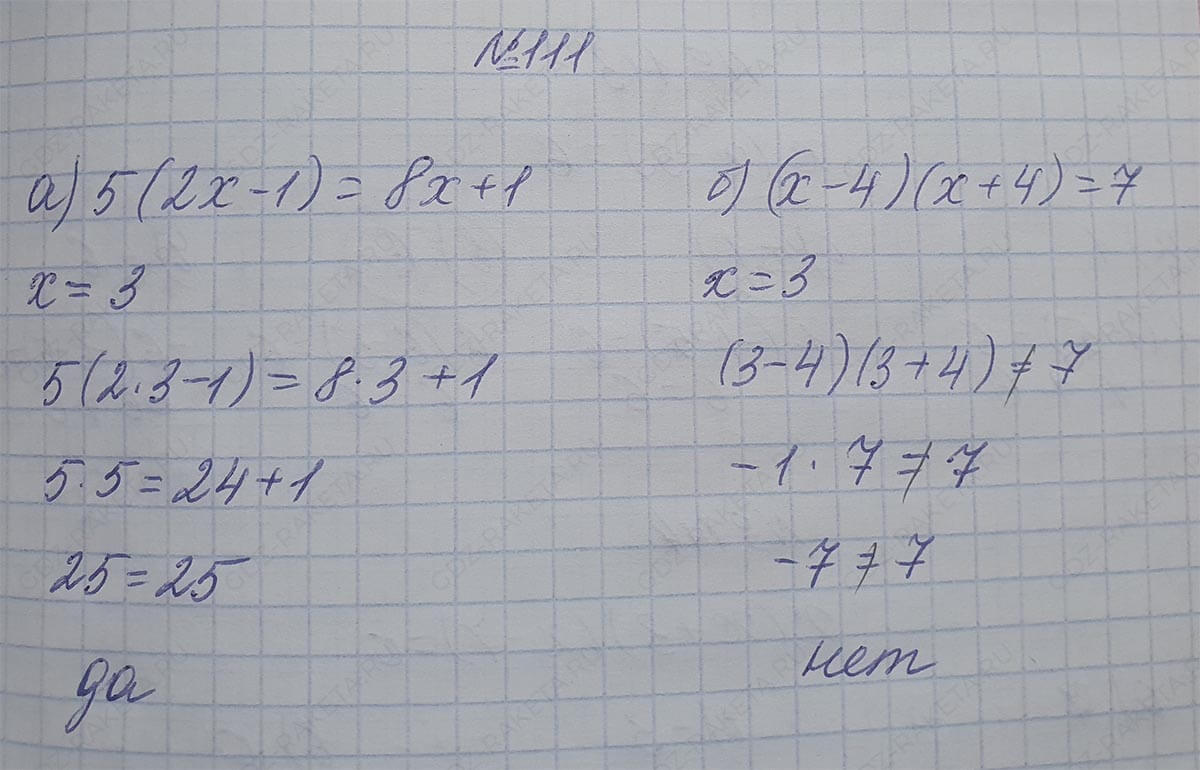 №111
а) 5(2x-1) = 8x+1
x = 3
5(2·3-1) = 8·3+1
5·5 = 24+1
25 = 25
да
б) (x-4)(x+4) = 7
x = 3
(3-4)(3+4) ≠ 7
-1·7 ≠ 7
-7 ≠ 7
нет
GDZ-RAKETA.RU